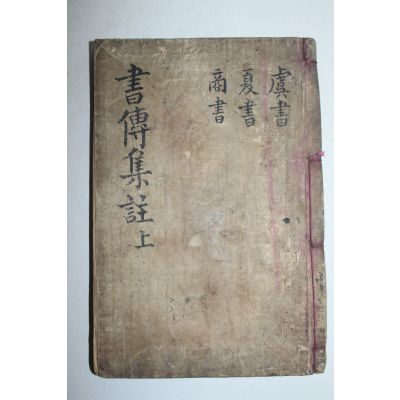 虞書
夏書
商書
書傳集註上